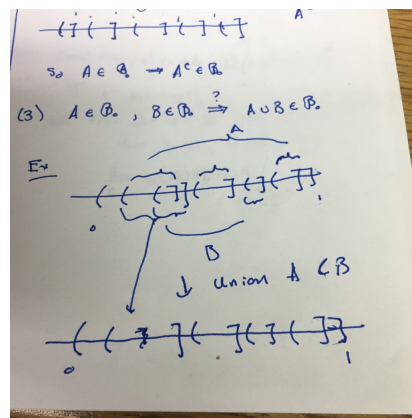 A
( ] ( ] ( ] ( ]
So A ∈ B₀ → Aᶜ ∈ B₀
(3) A ∈ B₀ , B ∈ B₀ ?⇒ A ∪ B ∈ B₀
A
Ex
0 1
B
↓ Union A & B
0 1